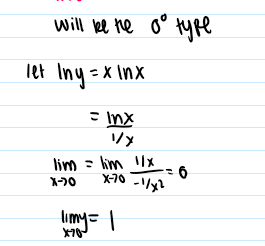 will be the 0⁰ type
let lny = x lnx
= lnx / 1/x
lim x→0 = lim x→0 1/x / -1/x² = 0
lim y = 1 x→0